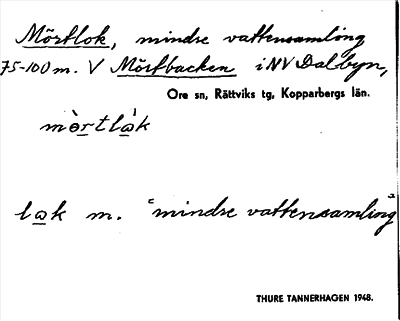 Mörtlok, mindre vattensamling
75-100 m. V Mörtbacken i NV Dalbyn,
Ore sn, Rättviks tg, Kopparbergs län.
mὸrtlὰk
lak m. "mindre vattensamling"
THURE TANNERHAGEN 1948.